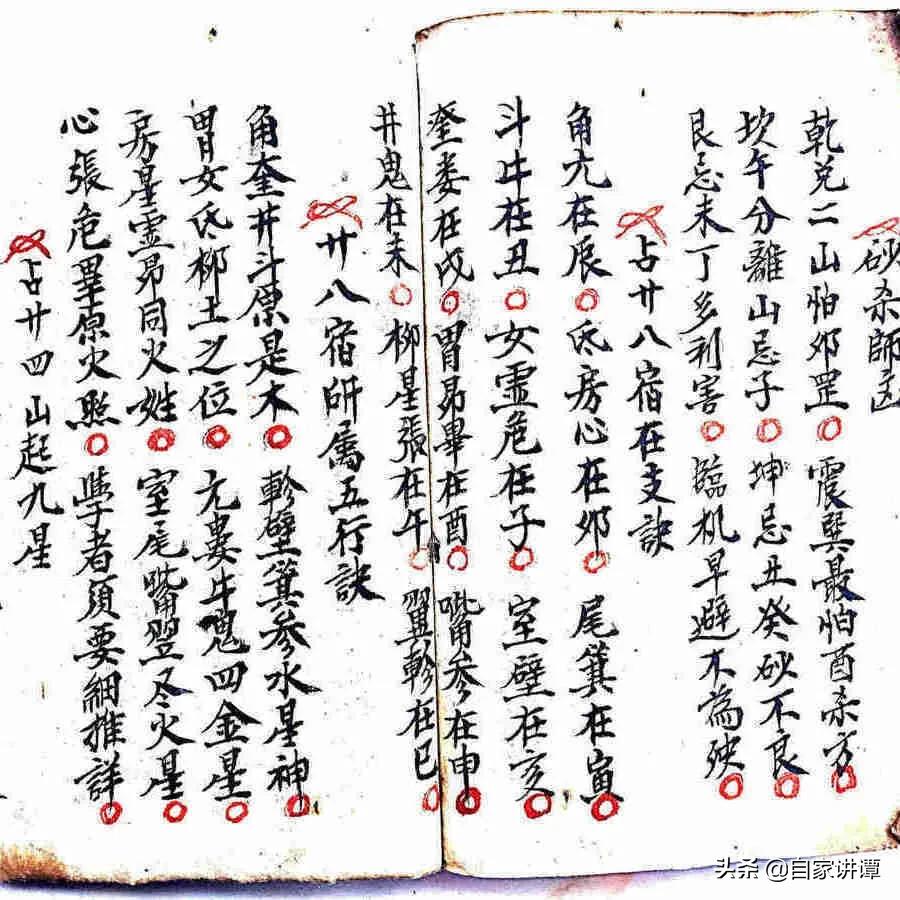 砂杀師区
乾兑二山怕邜罡 震巽最怕酉杀方
坎午分離山忌子 坤忌丑癸砂不良
艮忌未丁多利害 臨机早避不為殃
占廿八宿在支訣
角亢在辰 氐房心在邜 尾箕在寅
斗牛在丑 女虚危在子 室壁在亥
奎娄在戌 胃昴畢在酉 嘴参在申
井鬼在未 柳星張在午 翼軫在巳
廿八宿所属五行訣
角奎井斗原是木 軫壁箕参水星神
胃女氐柳土之位 亢娄牛鬼四金星
房星虚昴同火姓 室尾嘴翌尽火星
心張危畢原火熙 学者須要細推詳
占廿四山起九星
头条 @自家讲谭